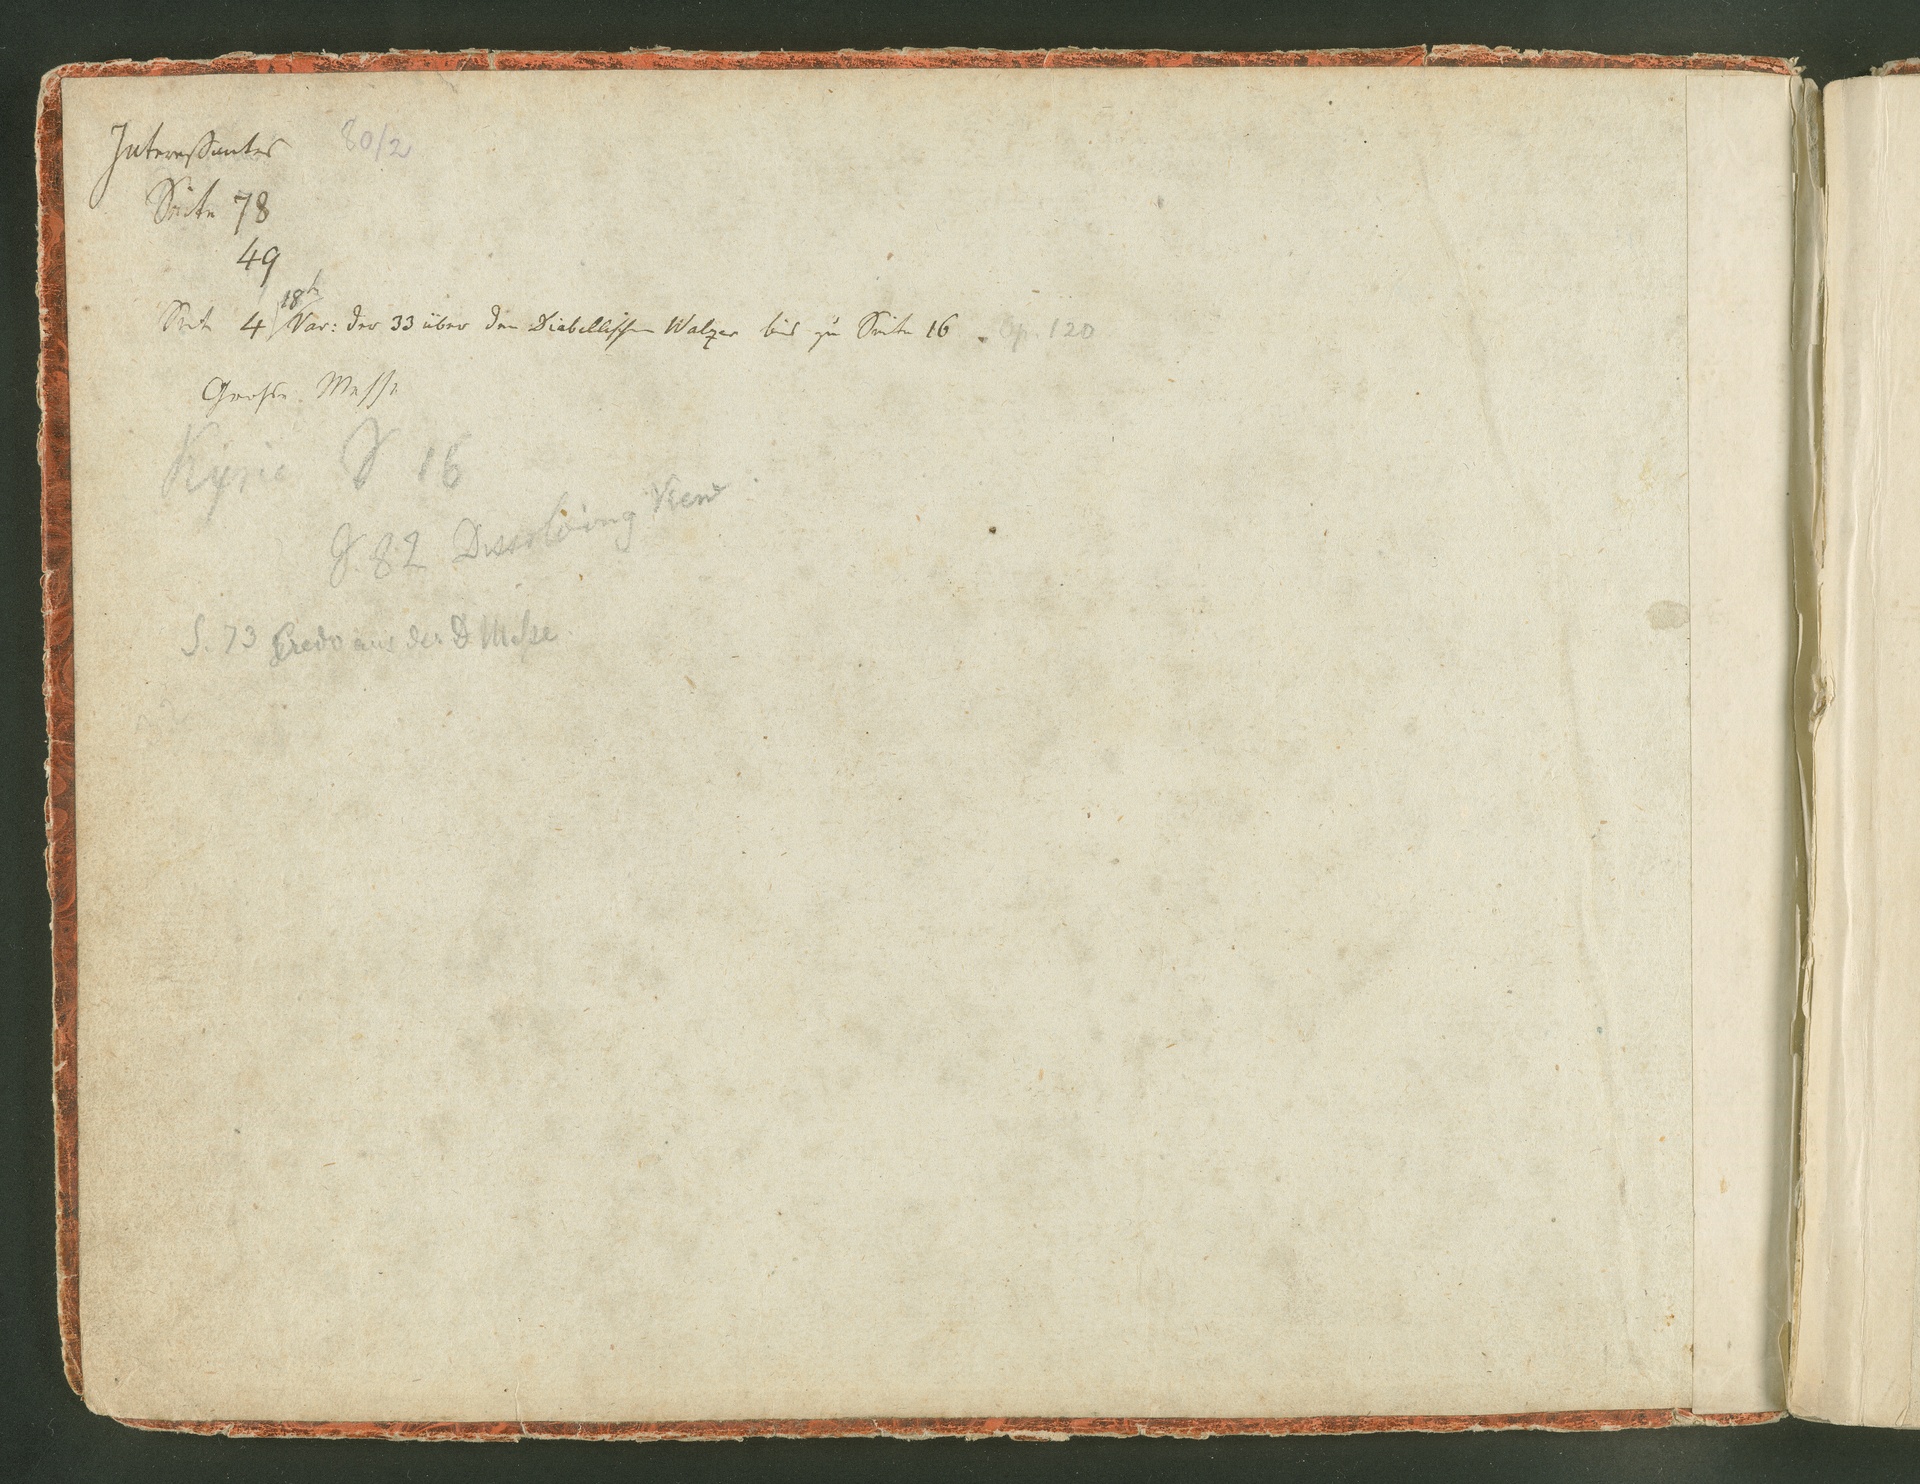 Interessantes 80/2
Seite 78
49
18te
Seite 4 Var: der 33 über den Diabellischen Walzer bis zu Seite 16. Op. 120
Grosse Messe
Kyrie S 16
S. 82 Dissolving
S. 73 Credo aus der D Messe